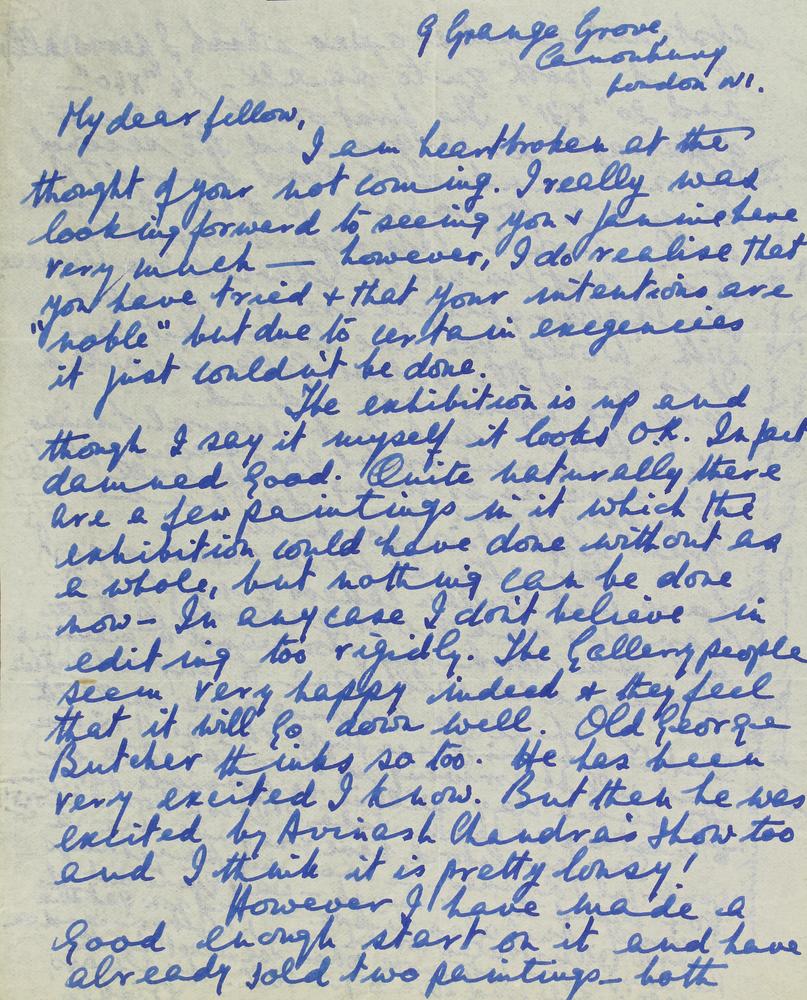 9 Grange Grove,
Canonbury
London N1.
My dear fellow,
I am heartbroken at the
thought of your not coming. I really was
looking forward to seeing you & Janine here
very much — however, I do realise that
you have tried & that your intentions are
"noble" but due to certain exegencies
it just couldn't be done.
The exhibition is up and
though I say it myself it looks O.K. In fact
damned good. Quite naturally there
are a few paintings in it which the
exhibition could have done without as
a whole, but nothing can be done
now – In any case I don't believe in
editing too rigidly. The Gallery people
seem very happy indeed & they feel
that it will go down well. Old George
Butcher thinks so too. He has been
very excited I know. But then he was
excited by Avinash Chandra's show too
and I think it is pretty lousy!
However I have made a
good enough start on it and have
already sold two paintings – both